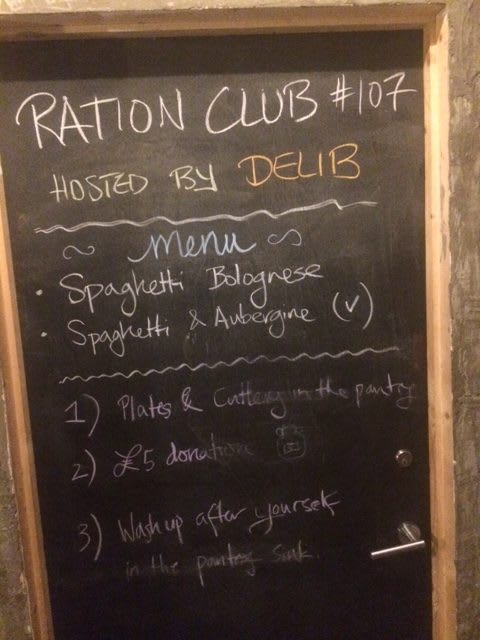 RATION CLUB #107
HOSTED BY DELIB
menu
• Spaghetti Bolognese
• Spaghetti & Aubergine (v)
1) Plates & Cutlery in the pantry
2) £5 donation
3) Wash up after yourself
in the pantry sink.